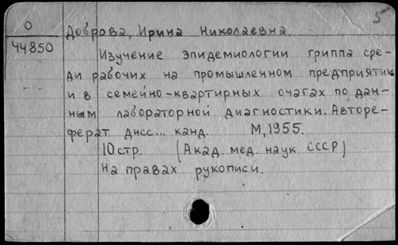 5
О Доброва, Ирина Николаевна.
44850
Изучение эпидемиологии гриппа сре-
ди рабочих на промышленном предприятии
и в семейно-квартирных очагах по дан-
ным лабораторной диагностики. Авторе-
ферат дисс... канд. М, 1955.
10 стр. (Акад. мед. наук СССР)
На правах рукописи.